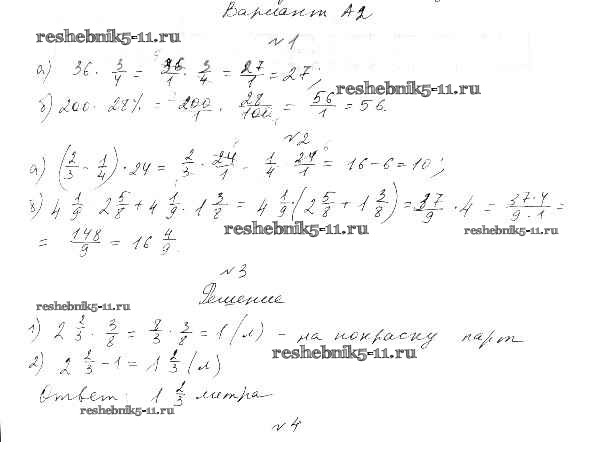 Вариант А2
reshebnik5-11.ru
№1
а) 36 · 3/4 = 36/1 · 3/4 = 27/1 = 27;
reshebnik5-11.ru
б) 200 · 28% = 200/1 · 28/100 = 56/1 = 56.
№2
а) (2/3 - 1/4) · 24 = 2/3 · 24/1 - 1/4 · 24/1 = 16 - 6 = 10;
б) 4 1/9 · 2 5/8 + 4 1/9 · 1 3/8 = 4 1/9 · (2 5/8 + 1 3/8) = 37/9 · 4 = 37·4/9·1 =
reshebnik5-11.ru reshebnik5-11.ru
= 148/9 = 16 4/9.
№3
Решение
reshebnik5-11.ru
1) 2 2/3 · 3/8 = 8/3 · 3/8 = 1 (л) - на покраску парт
reshebnik5-11.ru
2) 2 2/3 - 1 = 1 2/3 (л)
Ответ: 1 2/3 литра
reshebnik5-11.ru
№4